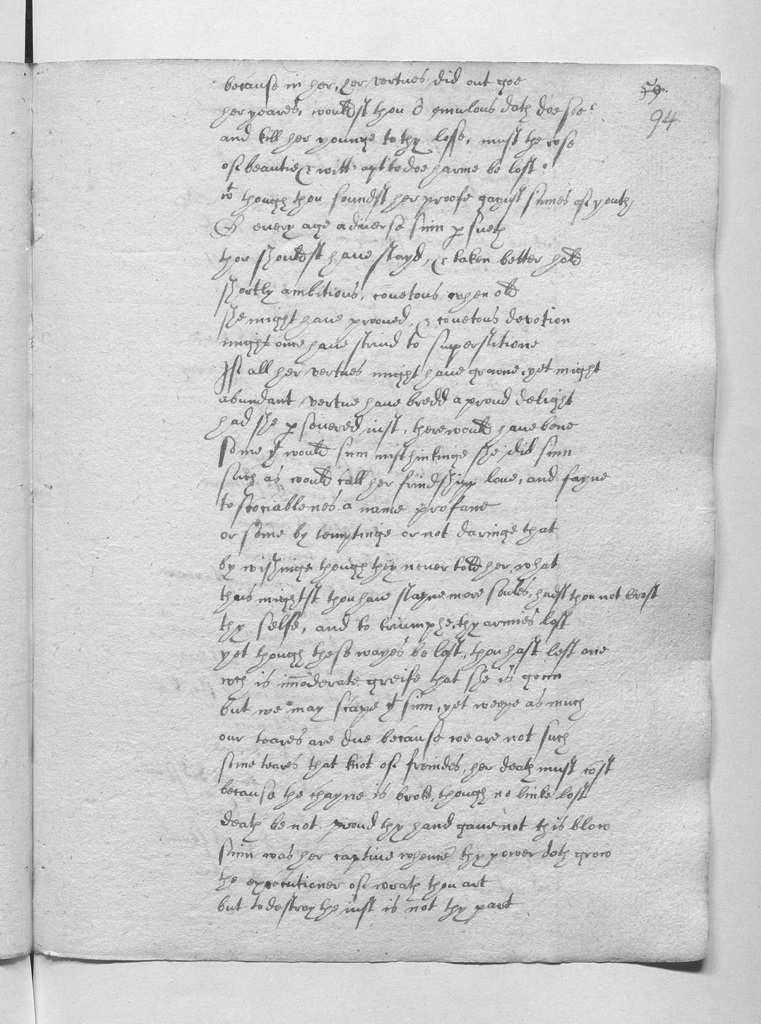 because in her, her vertues did out goe
59.
her yeares, wouldst thou ô emulous death doe soe
94
and kill her younge to thy losse, must the cost
of beautie & witt apt to doe harme be lost.
wt though thou foundst her proofe gainst sinnes of youth
O every age a diverse sinn psueth
thou shouldst have stayd, & taken better hold
shortly ambitious, couetous when old
she might haue prooued, & couetous devotion
might once haue straid to superstitione
If all her vertues might haue growne, yet might
abundant vertue haue bredd a proud delight
had she psevered iust, there would haue bene
some yt would sinn misthinkinge she did sinn
such as would call her frindshipp loue, and fayne
to sociablenes a name profane
or sinne by temptinge or not daringe that
by wishinge though they never told her what
thus mightst thou haue slayne more soules, hadst thou not crost
thy selfe, and to triumphe, thy armies lost
yet though these wayes be lost, thou hast left one
wch is imoderate greife that she is gonn
but we may scape yt sinn, yet weepe as much
our teares are due because we are not such
some teares that knot of freindes, her death must cost
because the chayne is broke, though no linke lost
death be not proud thy hand gaue not this blow
sinn was her captive whence thy power doth grow
the executioner of wrath thou art
but to destroy the iust is not thy part